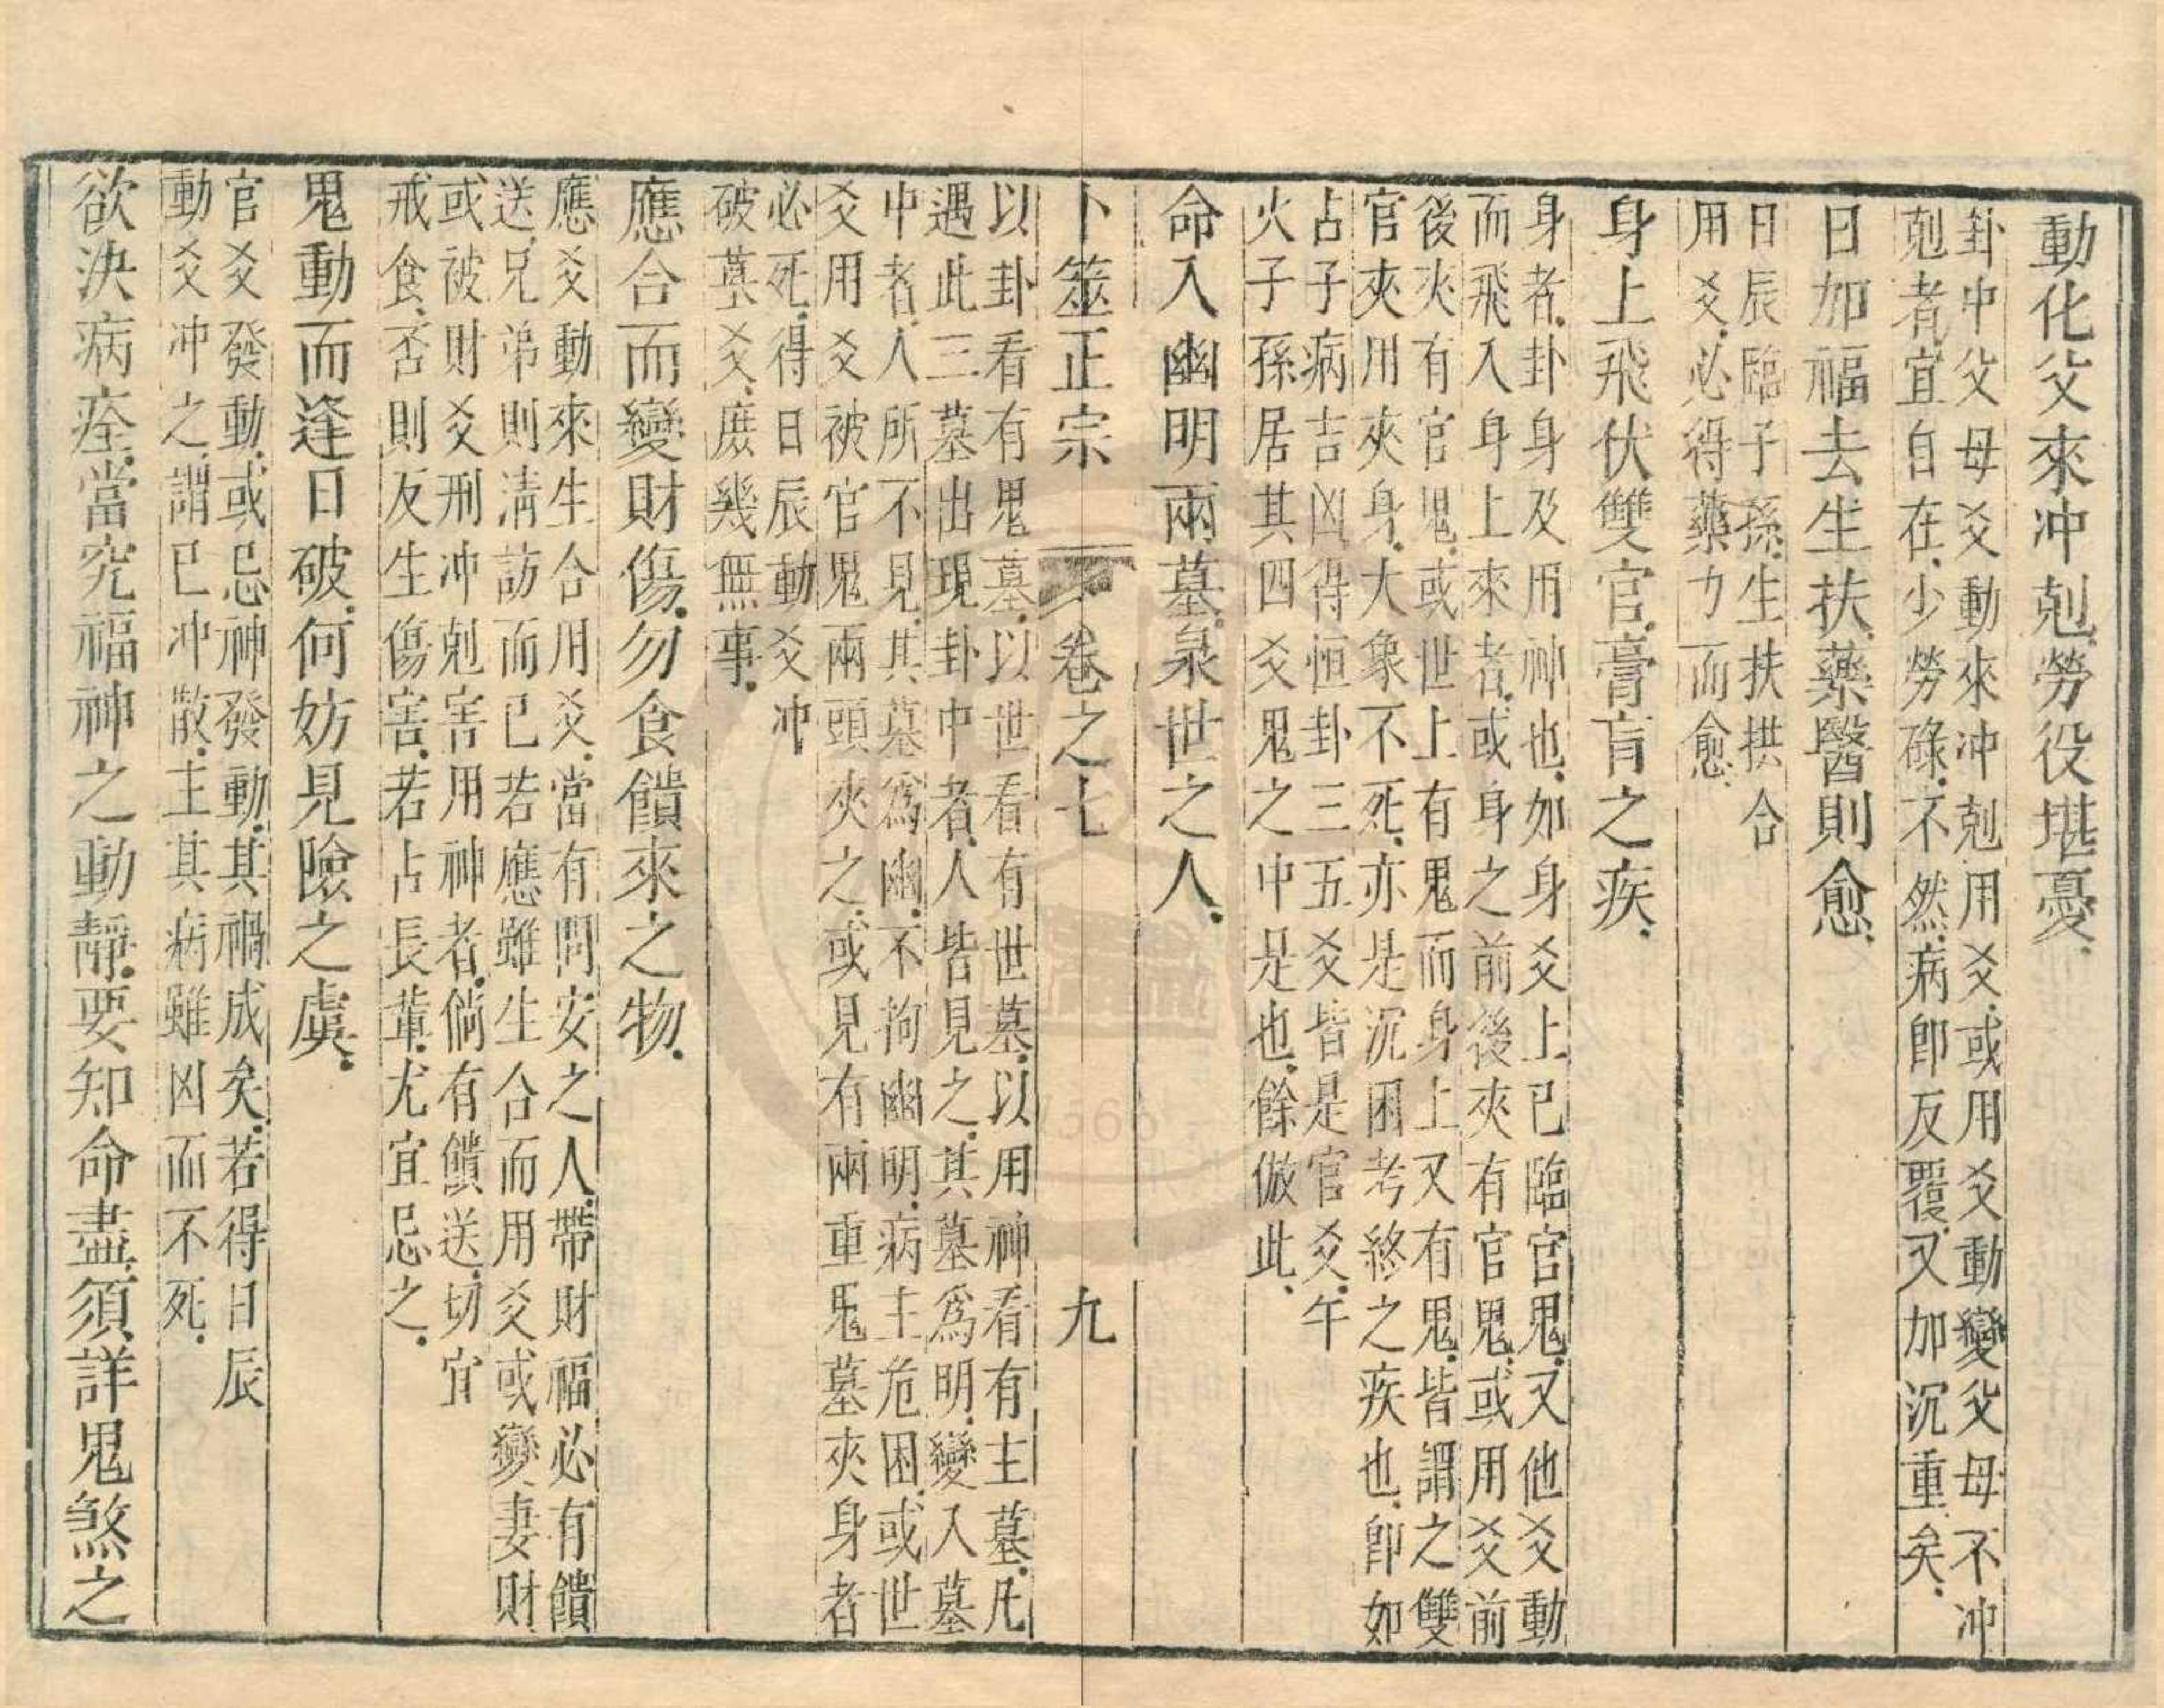 動化父來冲剋勞役堪憂
卦中父母爻動來冲剋用爻或用爻動變父母不冲
剋者宜自在少勞碌不然病即反覆又加沉重矣
日加福去生扶藥醫則愈
日辰臨子孫生扶拱合
用爻必得藥力而愈
身上飛伏雙官膏肓之疾
身者卦身及用神也如身爻上已臨官鬼又他爻動
而飛入身上來者或身之前後夾有官鬼或用爻前
後夾有官鬼或世上有鬼而身上又有鬼皆謂之雙
官夾用夾身大象不死亦是沉困考終之疾也即如
占子病吉凶得恒卦三五爻皆是官爻午
火子孫居其四爻鬼之中是也餘倣此
命入幽明兩墓泉世之人
卜筮正宗 卷之七 九
以卦看有鬼墓以世看有世墓以用神看有主墓凡
遇此三墓出現卦中者人皆見之其墓爲明變入墓
中者人所不見其墓爲幽不拘幽明病主危困或世
爻用爻被官鬼兩頭夾之或見有兩重鬼墓夾身者
必死得日辰動爻冲
破墓爻庶幾無事
應合而變財傷勿食饋來之物
應爻動來生合用爻當有問安之人帶財福必有饋
送兄弟則清訪而已若應雖生合而用爻或變妻財
或被財爻刑冲剋害用神者倘有饋送切宜
戒食否則反生傷害若占長輩尤宜忌之
鬼動而逢日破何妨見險之虞
官爻發動或忌神發動其禍成矣若得日辰
動爻冲之謂已冲散主其病雖凶而不死
欲決病痊當究福神之動靜要知命盡須詳鬼煞之